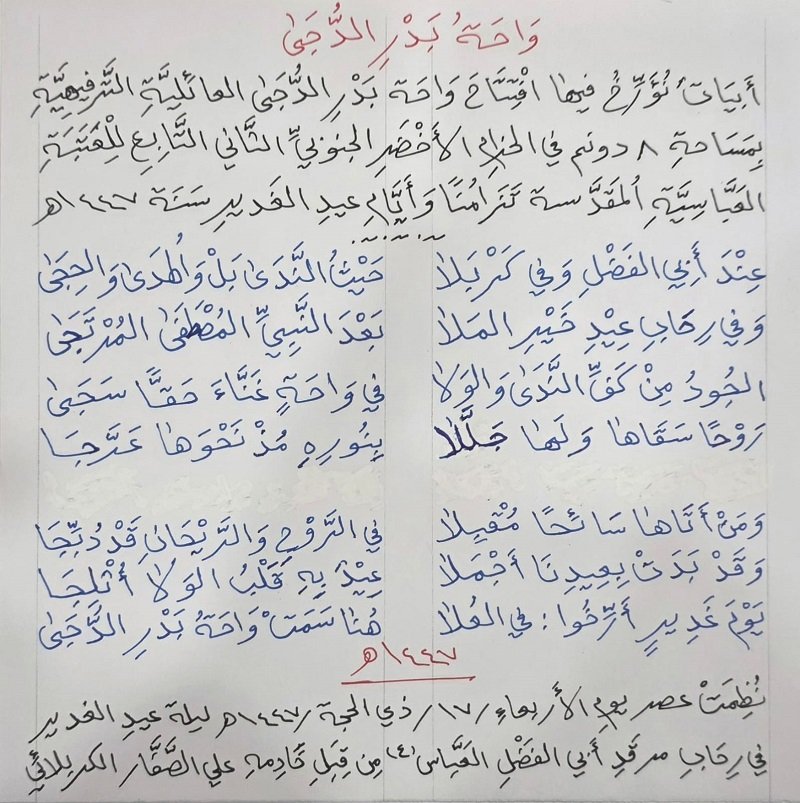 وَاحَةُ بَدْرِ الدُّجَىٰ
أَبيَاتٌ نُؤَرِّخُ فيها افْتِتَاحَ وَاحَة بَدْرِ الدُّجَىٰ العائليَّةِ التَّرفيهيَّةِ
بِمَسَاحةِ ٨ دونم في الحزامِ الأَخْضَرِ الجنوبيِّ الثَّاني التَّابعِ لِلْعَتَبَةِ
العَبَّاسيَّةِ المقدَّسة تَزَامُنًا وَأَيَّامِ عيدِ الغَديرِ سَنَة ١٤٤٧هـ
عِنْدَ أَبي الفَضْلِ وَفي كَرْبَلا حَيْثُ النَّدَىٰ بَلْ وَالهُدَىٰ وَالحِجَىٰ
وَفي رِحَابِ عِيْدِ خَيْرِ المَلا بَعْدَ النَّبيِّ المُصْطَفَىٰ المُرْتَجَىٰ
الجُودُ مِنْ كَفِّ النَّدَىٰ وَالوَلا في وَاحَةٍ غَنَّاءَ حَقًّا سَجَىٰ
رَوْحًا سَقَاها وَلَها جَلَّلا بِنُورِهِ مُذْ نَحْوَها عَرَّجَا
وَمَنْ أَتَاها سَائحًا مُقْبِلا في الرَّوْحِ وَالرَّيْحَانِ قَدْ دُبِّجَا
وَقَدْ بَدَتْ بِعِيدِنَا أَجْمَلا عِيْدٌ بِهِ قَلْبُ الوَلا أُثْلِجَا
يَوْمَ غَدِيرٍ أَرِّخُوا: في العُلا هُنا سَمَتْ وَاحَةُ بَدْرِ الدُّجَىٰ
١٤٤٧هـ
نُظِمَتْ عصر يومِ الأربعاءِ/١٧/ذي الحجة/١٤٤٧هـ ليلة عيدِ الغديرِ
في رِحابِ مرقدِ أَبي الفَضْلِ العَبَّاس (ع) مِن قِبَلِ خَادِمِهِ علي الصَّفَّار الكربلائيّ